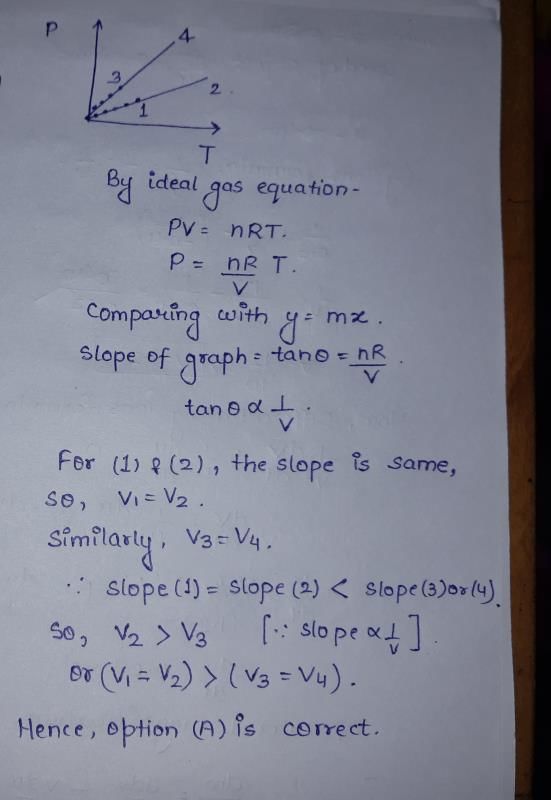 P
4
3
2
1
T
By ideal gas equation-
PV = nRT.
P = nR/V T.
Comparing with y = mx.
Slope of graph = tanθ = nR/V.
tanθ ∝ 1/V.
For (1) & (2), the slope is same,
so, V₁ = V₂.
Similarly, V₃ = V₄.
∵ slope (1) = slope (2) < slope (3) or (4).
So, V₂ > V₃ [∵ slope ∝ 1/V].
or (V₁ = V₂) > (V₃ = V₄).
Hence, option (A) is correct.